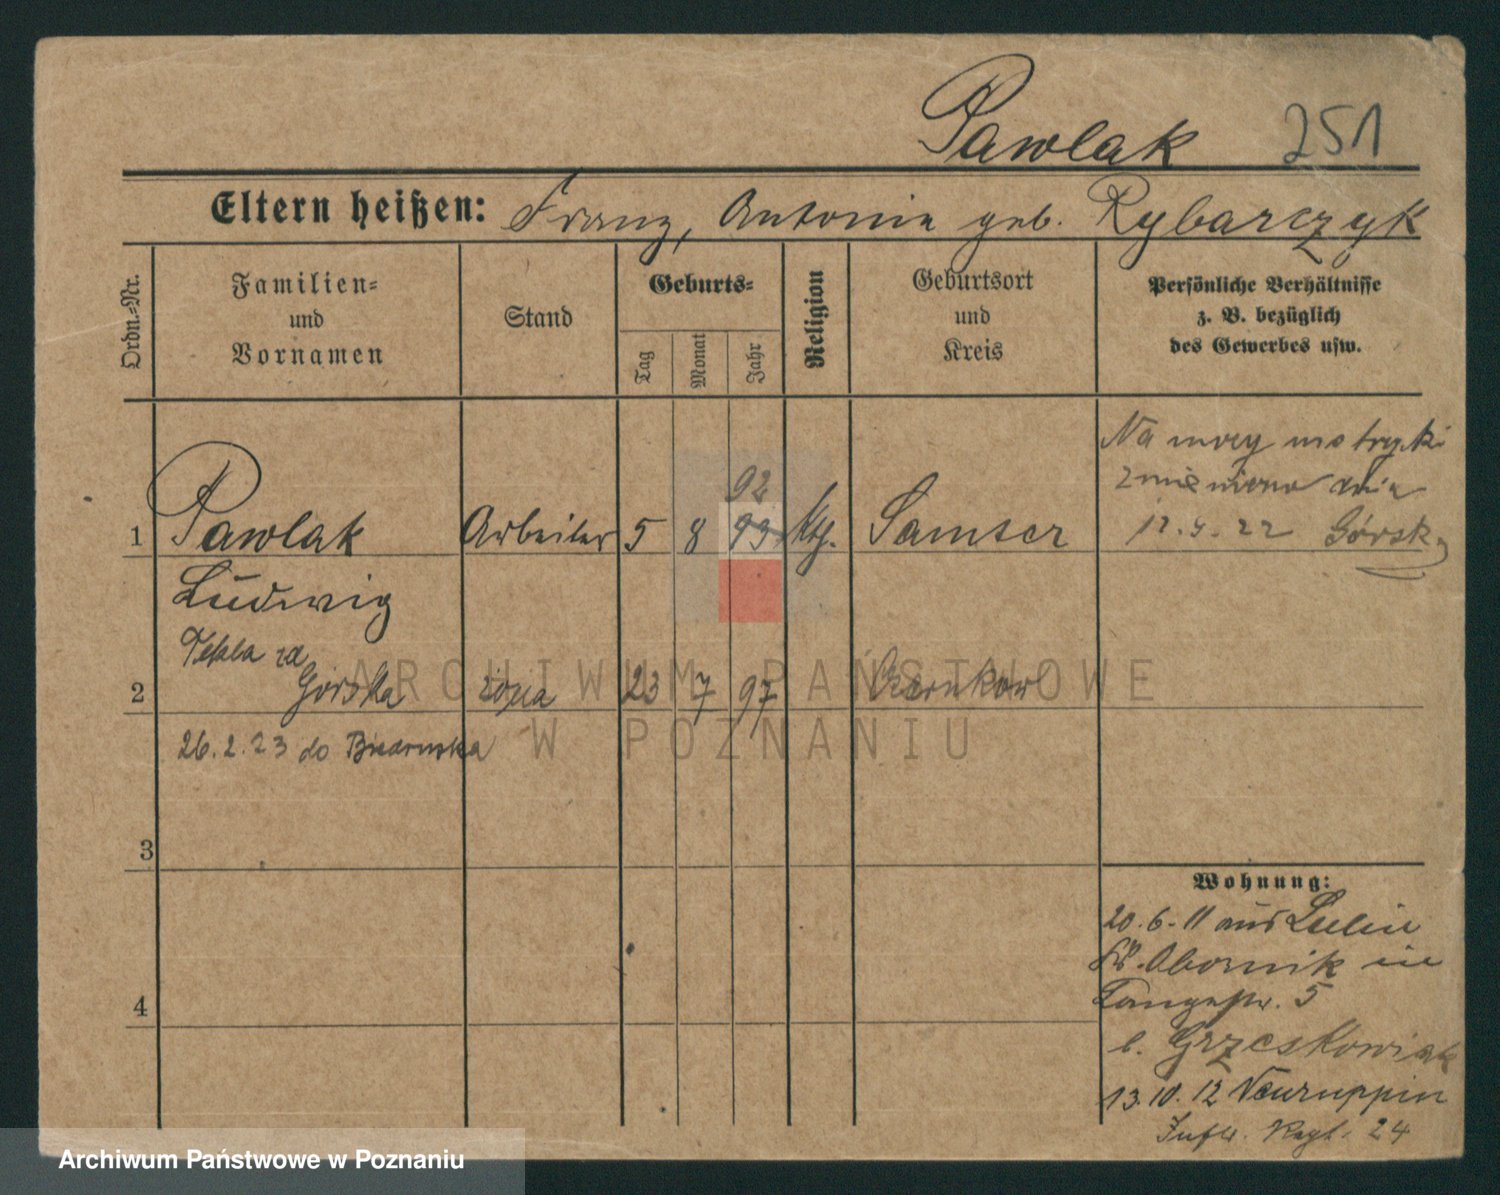 Pawlak 251
Eltern heißen: Franz, Antonie geb. Rybarczyk
Ordn.-Nr.
Familien-
und
Vornamen
Stand
Geburts-
Tag
Monat
Jahr
Religion
Geburtsort
und
Kreis
Persönliche Verhältnisse
z. B. bezüglich
des Gewerbes usw.
Na mocy metryki
zmieniono dnia
12.9.22 Górsk
92
1 Pawlak Arbeiter 5 8 93 kth. Samter
Ludwig
Tekla zd
2 Górska żona 23 7 97 Czarnkow
26.2.23 do Biedruska
3
4
Wohnung:
20.6.11 aus
Kr. Obornik in
Langestr. 5
b. Grzeskowiak
13.10.12 Neuruppin
Inftr. Regt. 24
ARCHIWUM PAŃSTWOWE
W POZNANIU
Archiwum Państwowe w Poznaniu